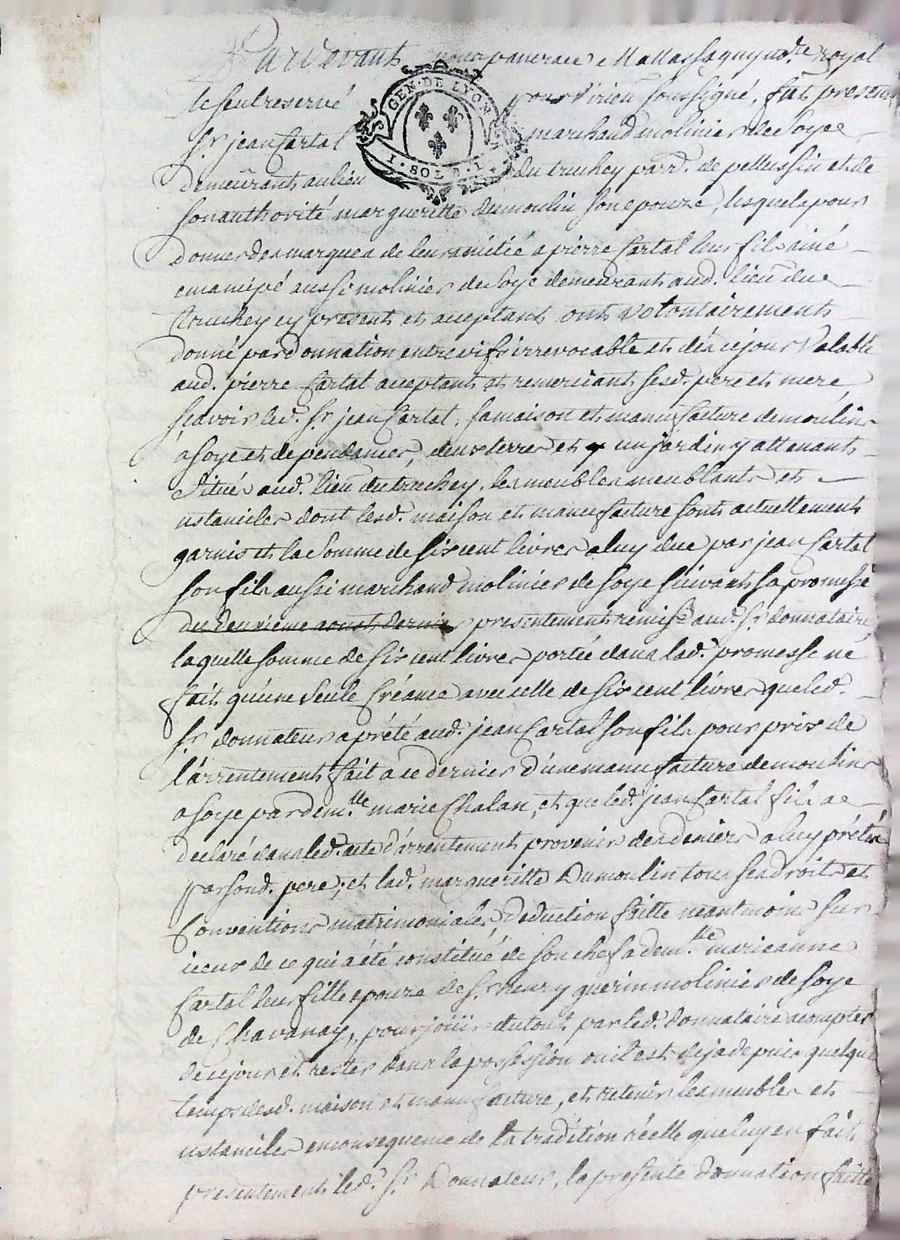 Pardevant nous pancrace Mallassagny no.re royal
le seul reservé pour Virieu soussigné, fut present
GEN·DE LYON
1·SOL
S.r jean Cartal marchand molinier de soye
demeurant au lieu du truchey parr. de pellussin et de
son authorité margueritte Dumoulin son epouze, lesquels pour
donner des marques de leur amitié a pierre Cartal leur fils ainé
emancipé aussi molinier de soye demeurant aud. lieu du
truchey icy present et acceptant ont volontairement
donné par donnation entre vifs irrevocable et dès ce jour Valable
aud. pierre Cartal acceptant et remerciant sesd. pere et mere
sçavoir led. S.r jean Cartal, sa maison et manufacture de moulins
a soye et dependances, deux terres et un jardin y attenants
situés aud. lieu du truchey, les meubles meublants et
ustanciles dont lesd. maison et manufacture sont actuellement
garnis et la somme de six cent livres a luy due par jean Cartal
son fils aussi marchand molinier de soye suivant sa promesse
du deuxieme aoust dernier presentement remise aud. S.r donnataire
laquelle somme de six cent livres portée dans lad. promesse ne
fait qu'une seule Créance avec celle de six cent livres que led.
S.r donnateur a prété aud. jean Cartal son fils pour prix de
l'arrentement fait a ce dernier d'une manufacture de moulins
a soye par dem.lle marie Chalan, et que led. jean Cartal fils a
declaré dans led. acte d'arrentement provenir des deniers a luy prétés
par sond. pere, et lad. margueritte Dumoulin tous ses droits et
Conventions matrimoniales, deduction faitte neantmoins sur
iceux de ce qui a été constitué de son chef a dem.lle marieanne
Cartal leur fille epouze de S.r henry guerin molinier de soye
de Chavanay, pour jouir du tout par led. donnataire a compter
de ce jour et rester dans la possession ou il est deja depuis quelque
temps desd. maison et manufacture, et retenir les meubles et
ustanciles en consequence de la tradition réelle que luy en fait
presentement led. S.r Donnateur, la presente donnation faitte